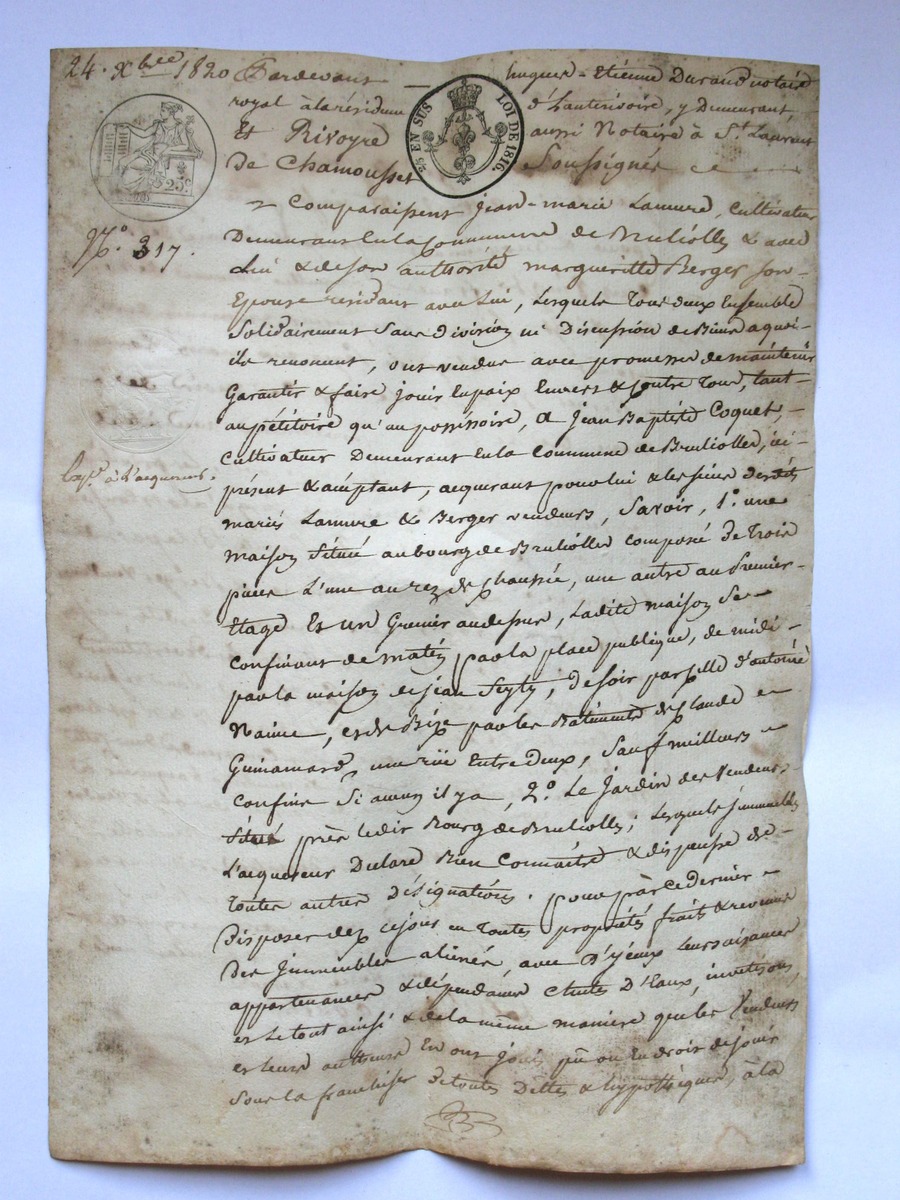 24. Xbre 1820 Pardevant hugues-Etienne Durand notaire
royal à la résidence d'hauterivoire, y Demeurant,
Et Rivoyre aussi Notaire à St Laurent
De Chamousset Soussignés
25 C.
25 EN SUS LOI DE 1816.
N° 317.
Comparaissent Jean-marie Lamure, Cultivateur
Demeurant En la Commune de Brullolles & avec
Lui & de son authorité margueritte Berger son
Epouse residant avec Lui, Lesquels Tous deux Ensemble
Solidairement Sans division ni Discussion de Biens a quoi
ils renoncent, ont vendus avec promesse de maintenir
Garantir & faire jouir En paix Envers & contre Tous, tant
au pétitoire qu'au possessoire, a Jean Baptiste Coquet,
Cultivateur Demeurant En la Commune de Brullolles, ici
Expé. à L'acquereur.
présent & acceptant, acquerant pour lui & les siens desdits
mariés Lamure & Berger vendeurs, Savoir, 1° une
maison Située au bourg de Brullolles composé de Trois
pièces L'une au rez de Chaussée, une autre au Premier
Etage Et un Grenier au dessus, Ladite maison Se
Confinant de matin par la place publique, de midi
par la maison de jean Seyty, de soir par celle d'antoine
Naime, et de Bize par les Batiments de Claude
Guinamard, une rüe Entre Deux, Sauf meilleurs
confins Si aucun il y a, 2° Le Jardin des Vendeurs,
Situé près ledit Bourg de Brullolles; Lesquels Immeubles
L'acquereur Déclare Bien Connaître & dispense de
Toutes autres Désignations. pour par ce dernier
Disposer dez cejour en Toutes propriétés fruits & revenus
Des Immeubles aliénés, avec leurs aisances
appartenances & dépendances Chutes D'Eaux, investisons
et le tout ainsi & de la même manière que les Vendeurs
et leurs autheurs En ont joui pû ou En droit de jouir
Sous la franchise De toutes Dettes & hypothèques, à la